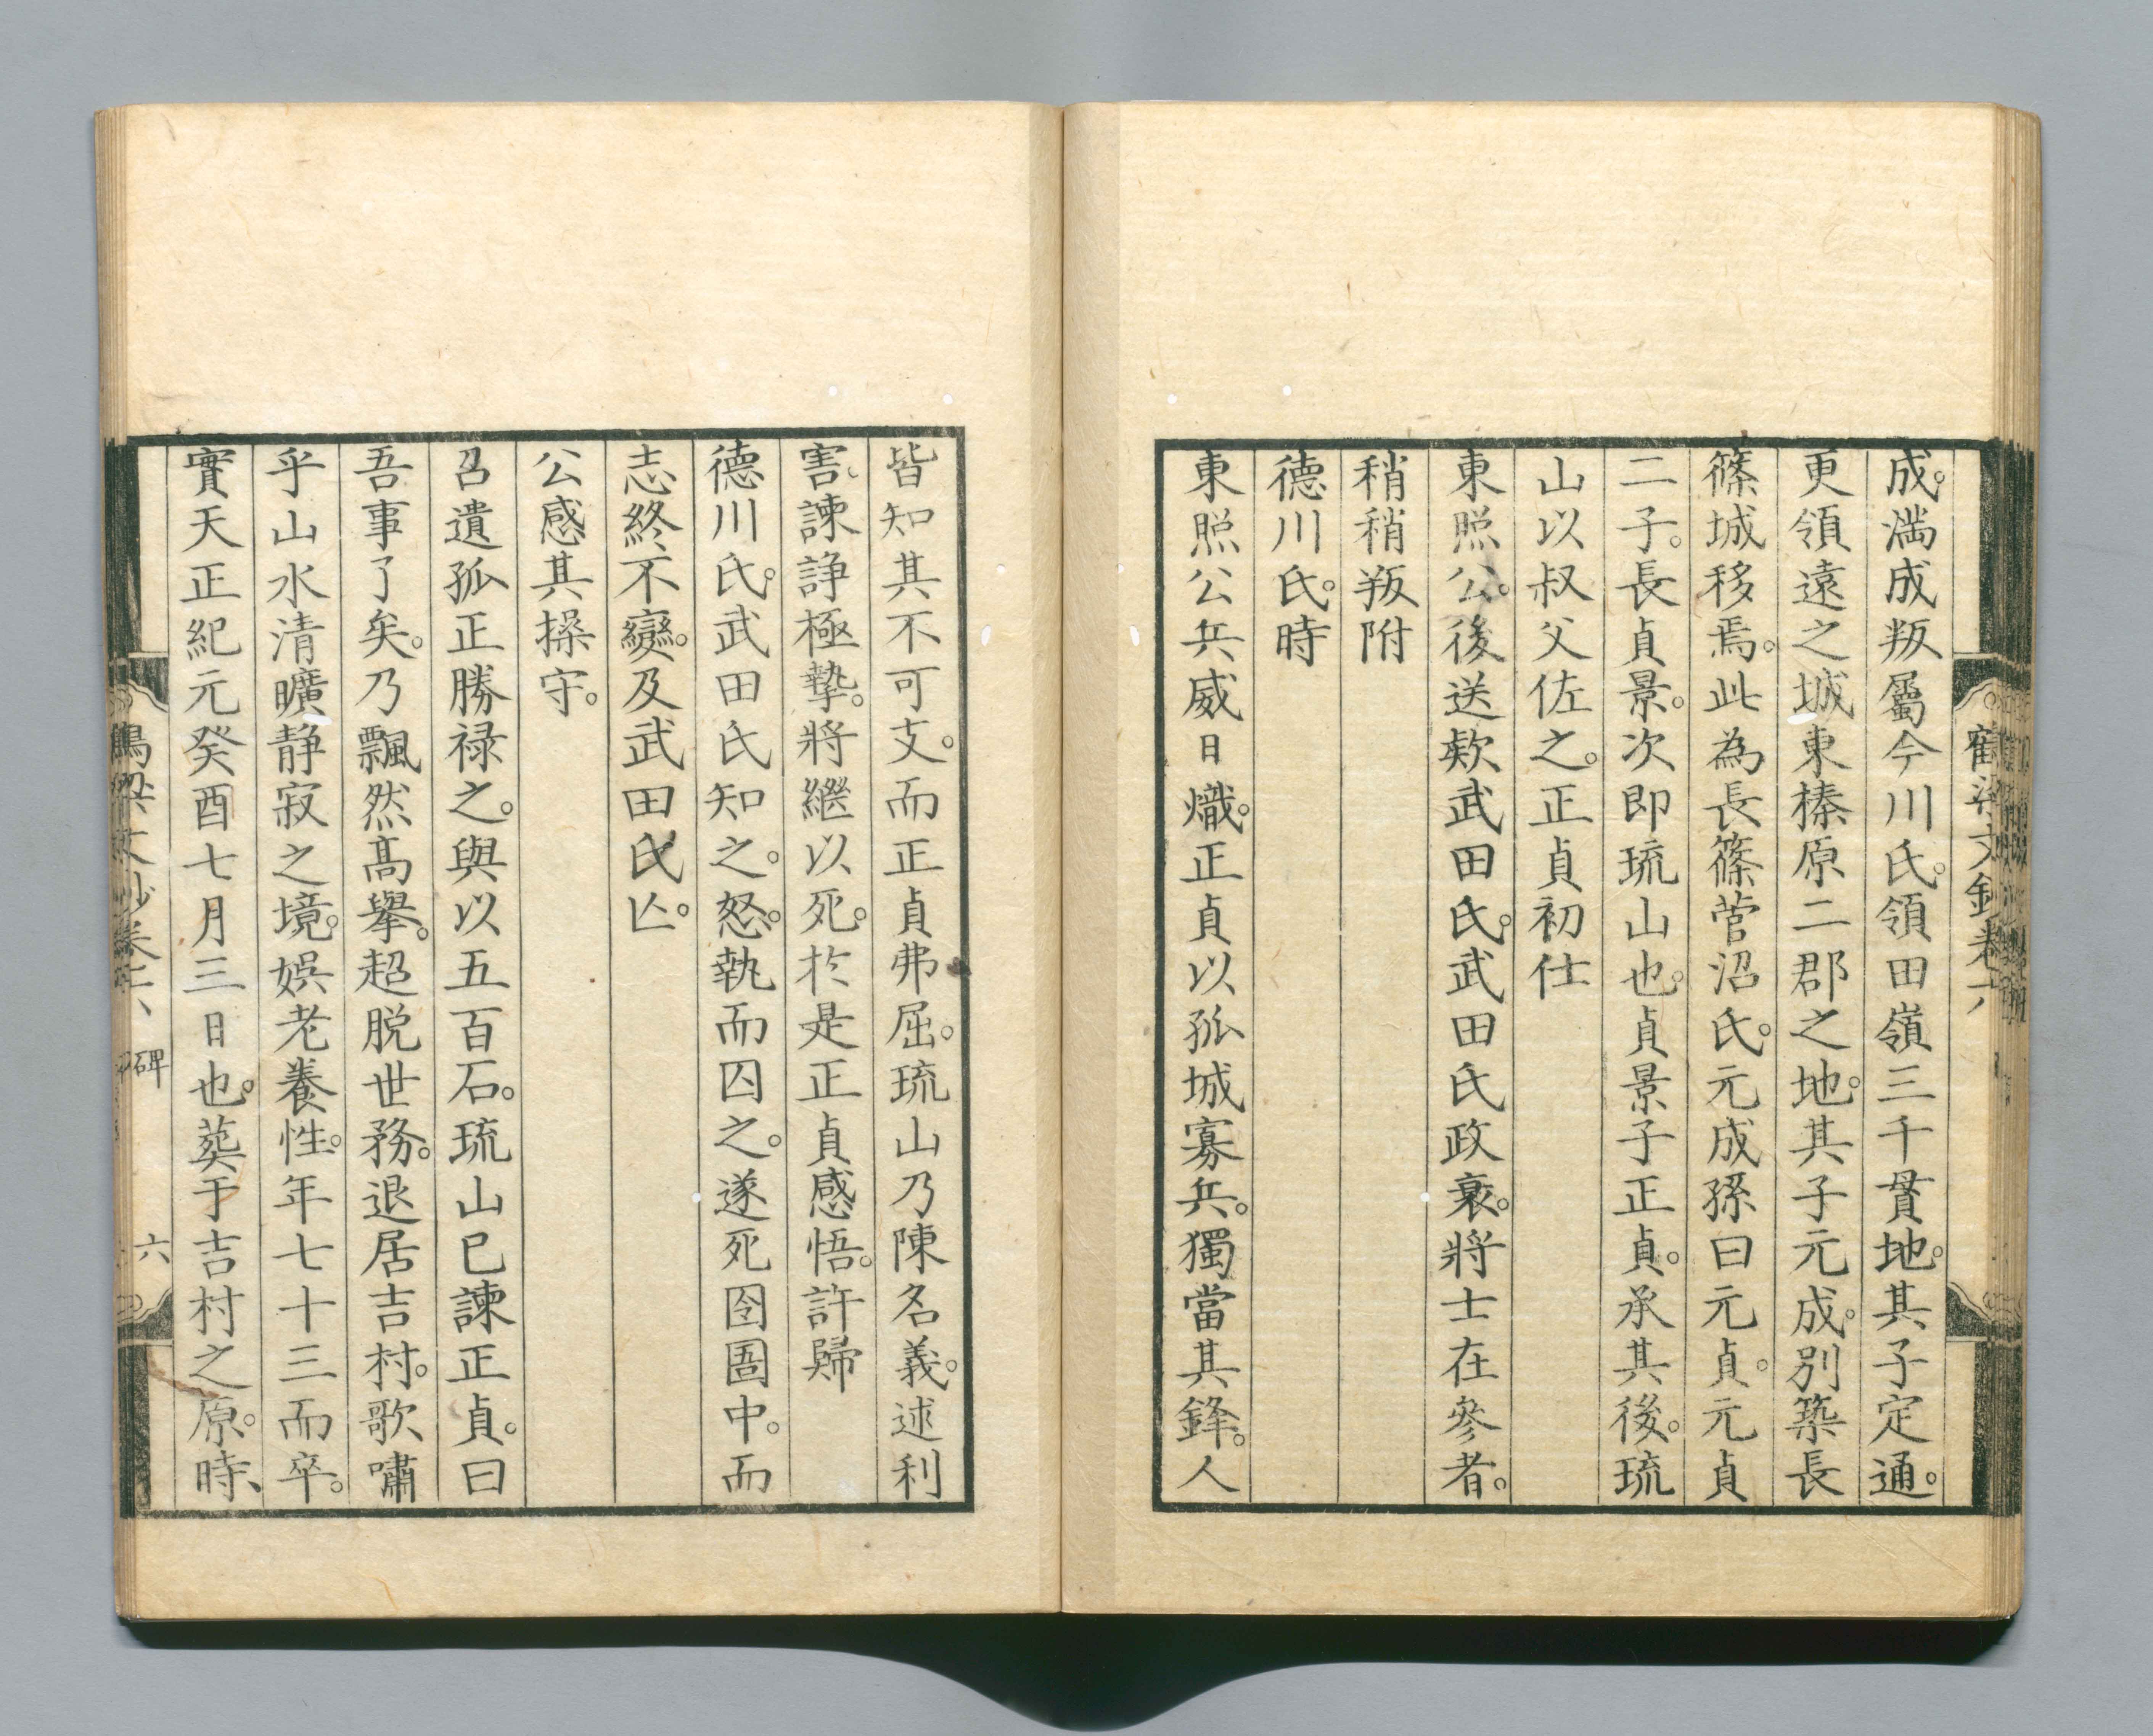 鶴梁文鈔卷六
成。満成叛屬今川氏。領田嶺三千貫地。其子定通。
更領遠之城東榛原二郡之地。其子元成。別築長
篠城移焉。此為長篠菅沼氏。元成孫曰元貞。元貞
二子。長貞景。次即琉山也。貞景子正貞。承其後。琉
山以叔父佐之。正貞初仕
東照公。後送欵武田氏。武田氏政衰。將士在參者。
稍稍叛附
德川氏。時
東照公兵威日熾。正貞以孤城寡兵。獨當其鋒。人
皆知其不可支。而正貞弗屈。琉山乃陳名義。述利
害、諫諍極摯。將繼以死。於是正貞感悟。許歸
德川氏。武田氏知之。怒。執而囚之。遂死囹圄中。而
志終不變。及武田氏亾。
公感其操守。
召遺孤正勝禄之。與以五百石。琉山已諫正貞。曰
吾事了矣。乃飄然高擧。超脱世務。退居吉村。歌嘯
乎山水清曠静寂之境。娯老養性。年七十三而卒。
實天正紀元癸酉七月三日也。葬于吉村之原。時、
鶴梁文鈔卷六 碑 六